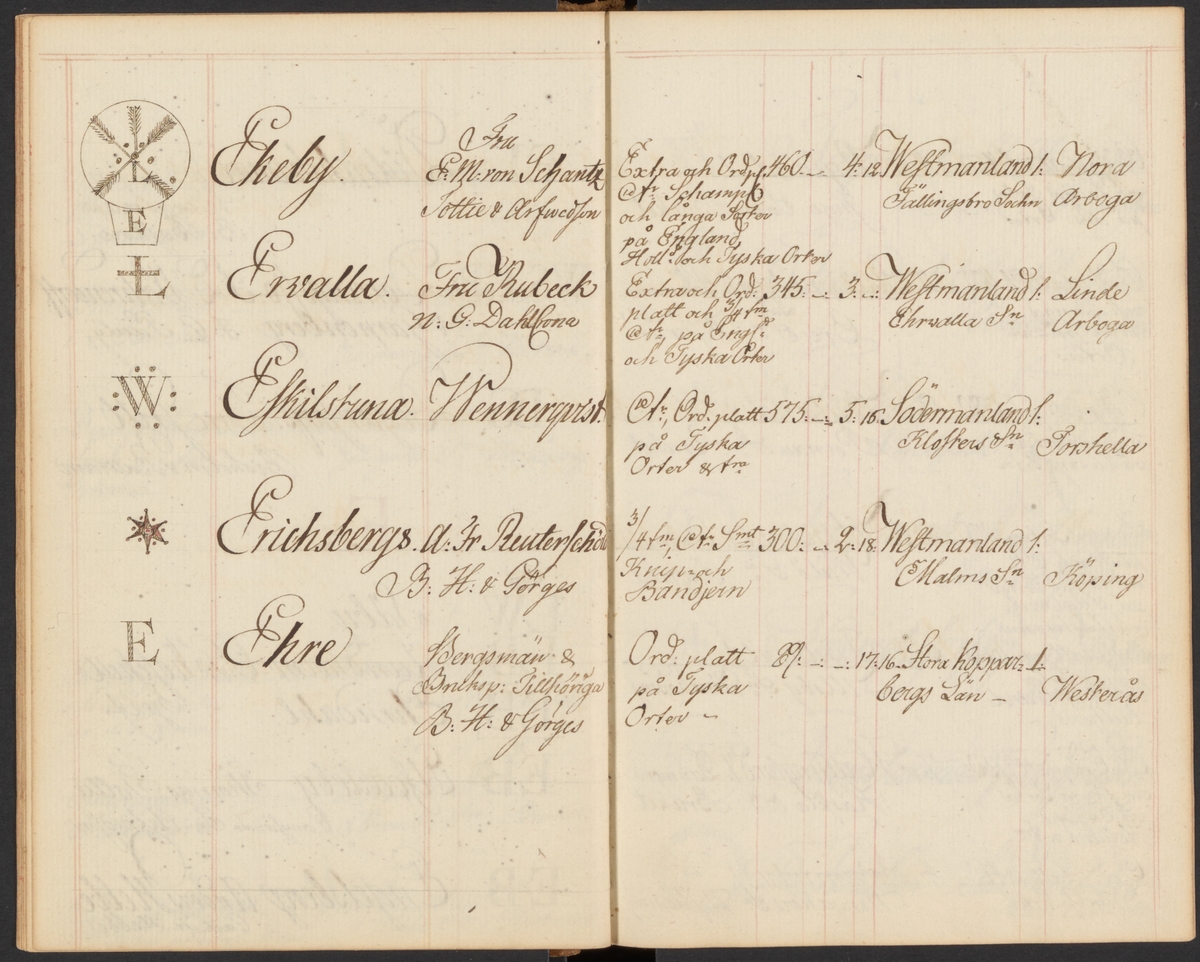 L
E
Ekeby.
Fru
E: M: von Schantz
Tottie & Arfwedson
Extra och Ord: pl. 460. — 4: 12 Westmanland 1: Nora
Ctr Schampl
och långa Sorter
på England,
Holl: och Tyska Orter
Fällingsbro Sochn Arboga
L
Ervalla.
Fru Rubeck
N: G: Dahl
Extra och Ord: 345: —: 3: —: Westmanland 1: Linde
platt och 3/4 tm
Ctr, på Engl:d
och Tyska Orter
Ehrvalla Sn Arboga
W
Eskilstuna.
Wennerqvist.
Ctr, Ord: platt 575: —: 5: 16. Södermanland 1:
på Tyska
Orter &
Klosters Sn Torshella
Erichsbergs.
A: Fr Reuterschiöld
B: H: & Görges
3/4 tm, Ctr Smt 300: —: 2: 18: Westmanland 1:
Knip- och
Bandjern
Malms Sn Köping
E
Ehre
Bergsmän &
Bruksp: Tillhöriga
B: H: & Görges
Ord: platt 89: —: —: 17: 16. Stora Koppar: 1:
på Tyska
Orter —
bergs Län — Westerås